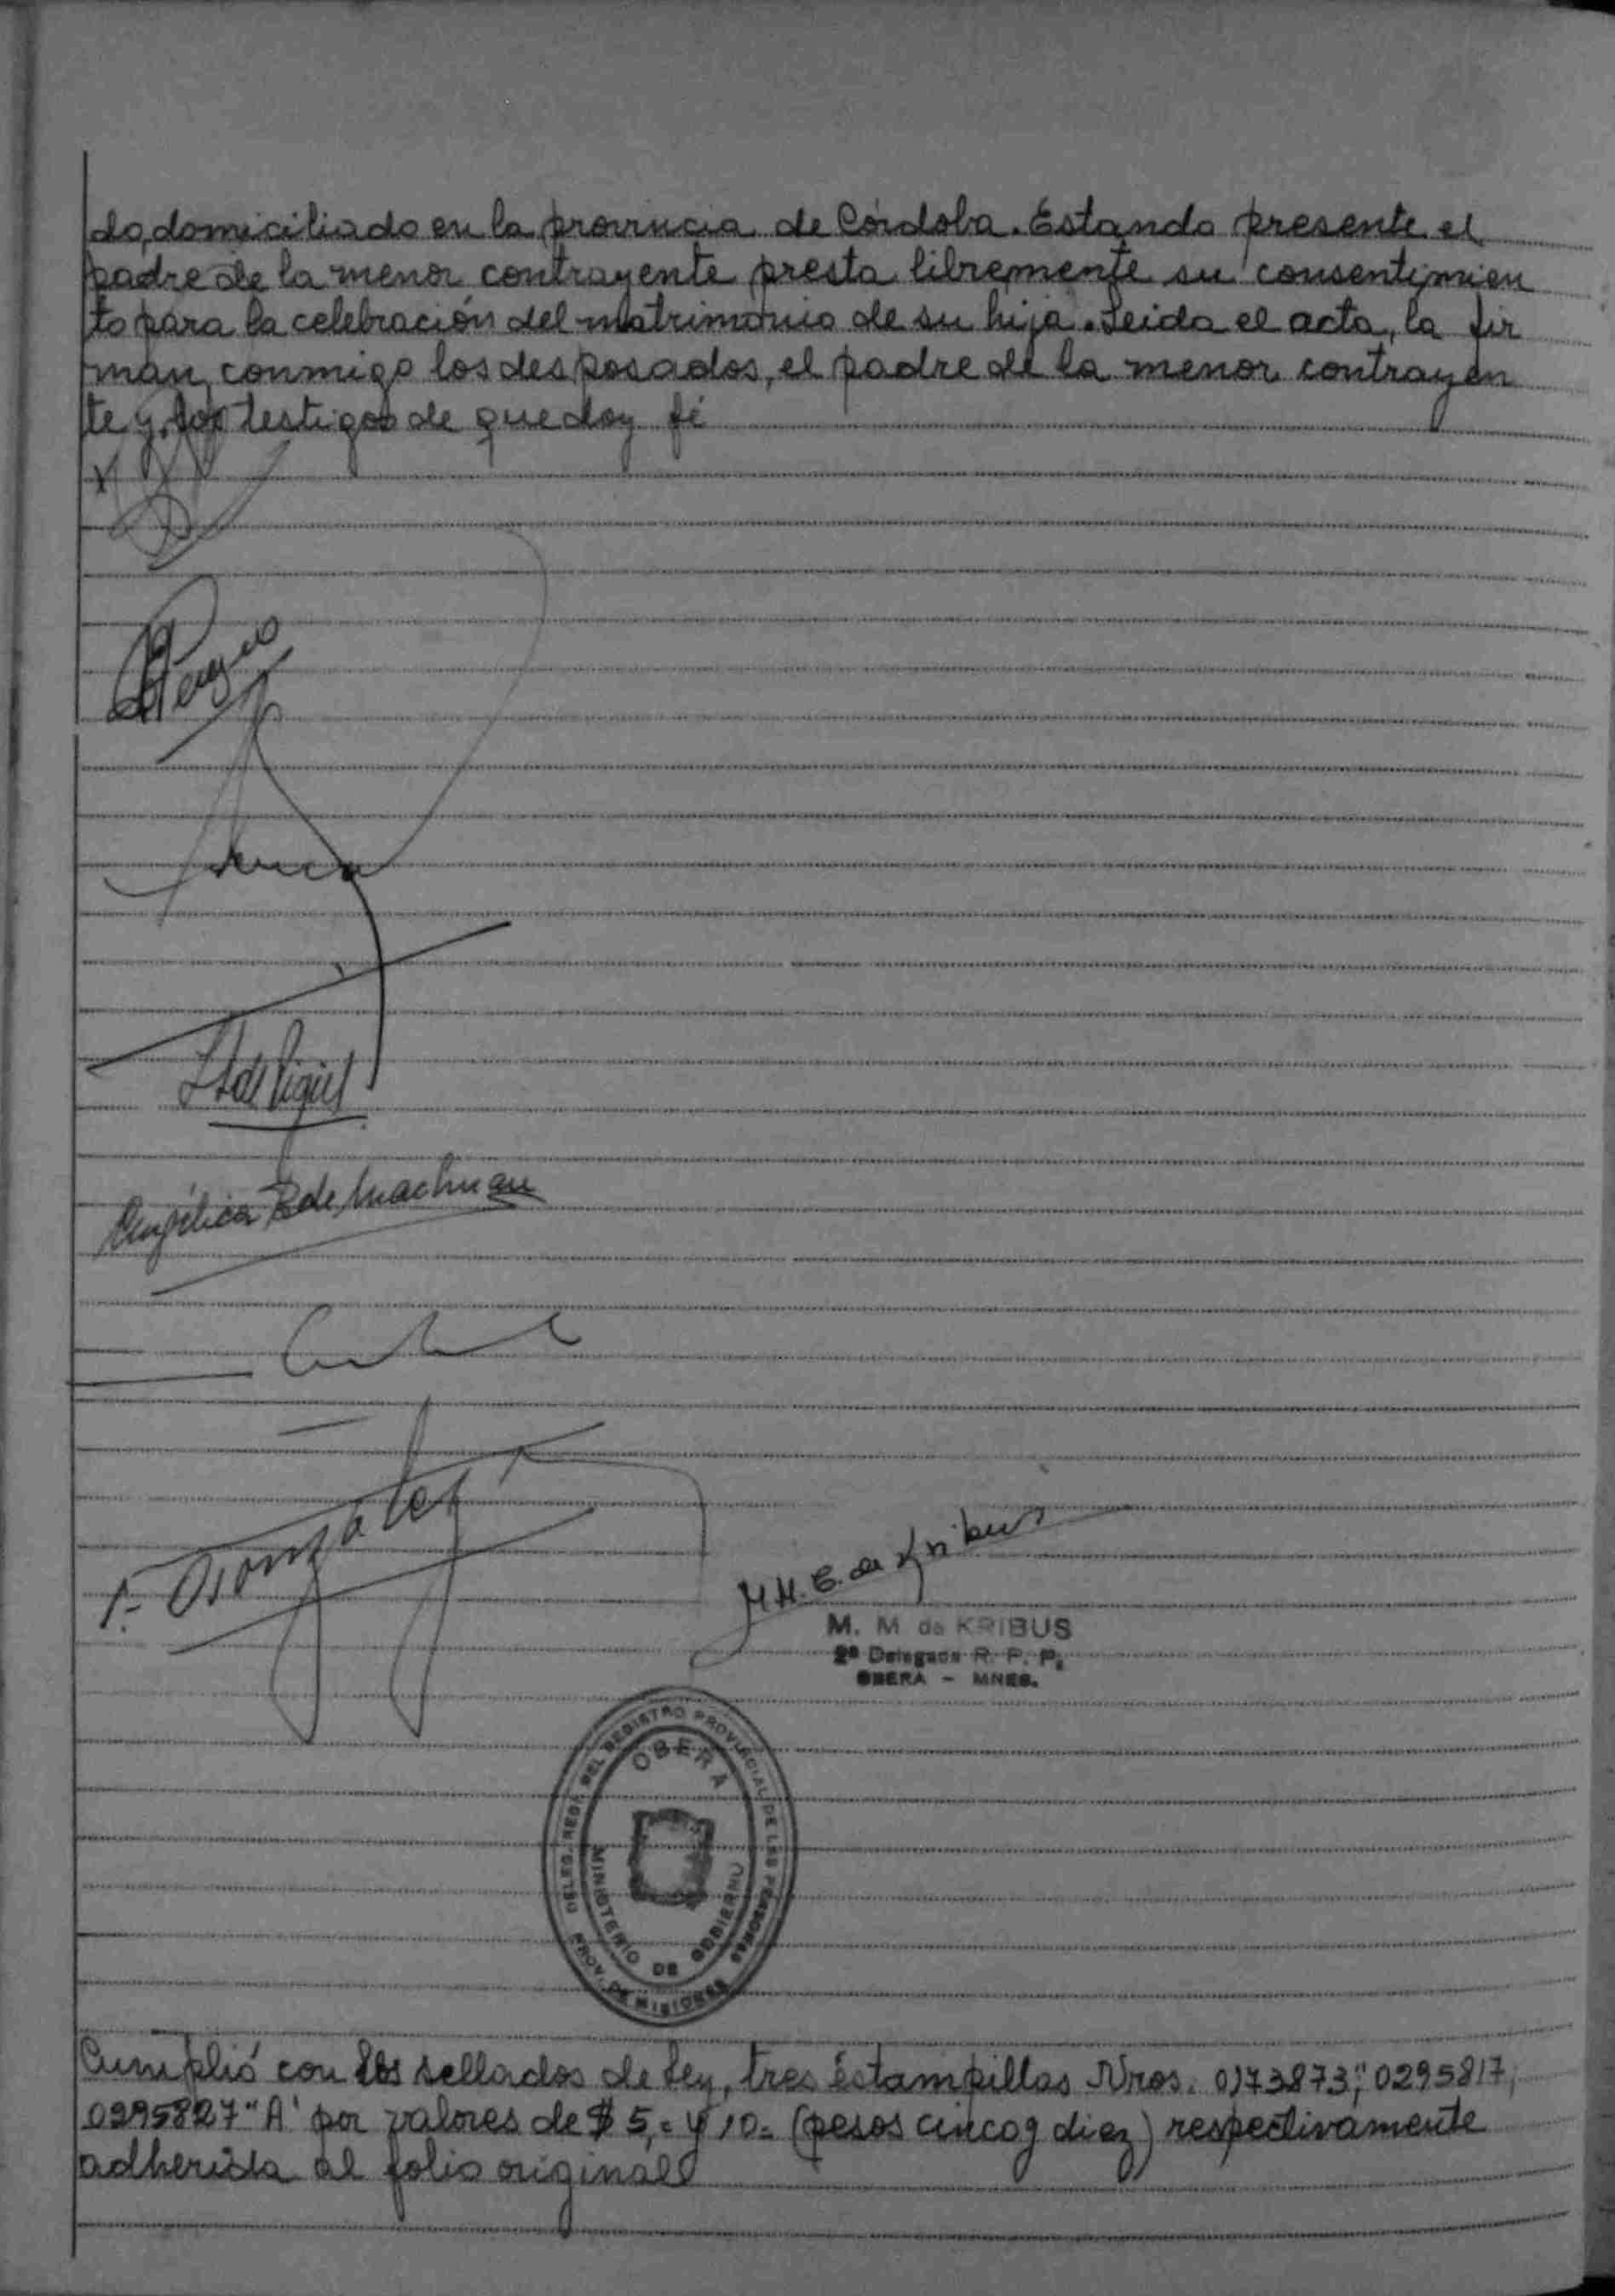 do, domiciliado en la provincia de Córdoba. Estando presente el
padre de la menor contrayente presta libremente su consentimien
to para la celebración del matrimonio de su hija. Leida el acta, la fir
man, conmigo los desposados, el padre de la menor contrayen
te y los testigos de que doy fé
Angélica B de Machuan
González
M. M. C. de Kribus
M. M de KRIBUS
2ª Delegada R. P. P.
OBERA - MNES.
DELEG. REGP. DEL REGISTRO PROVINCIAL DE LAS PERSONAS
OBERA
MINISTERIO DE GOBIERNO
PROV. DE MISIONES
Cumplió con los sellados de Ley, tres estampillas Nros. 0173873; 0295817,
0295827 "A" por valores de $ 5,= y 10= (pesos cinco y diez) respectivamente
adherida al folio original